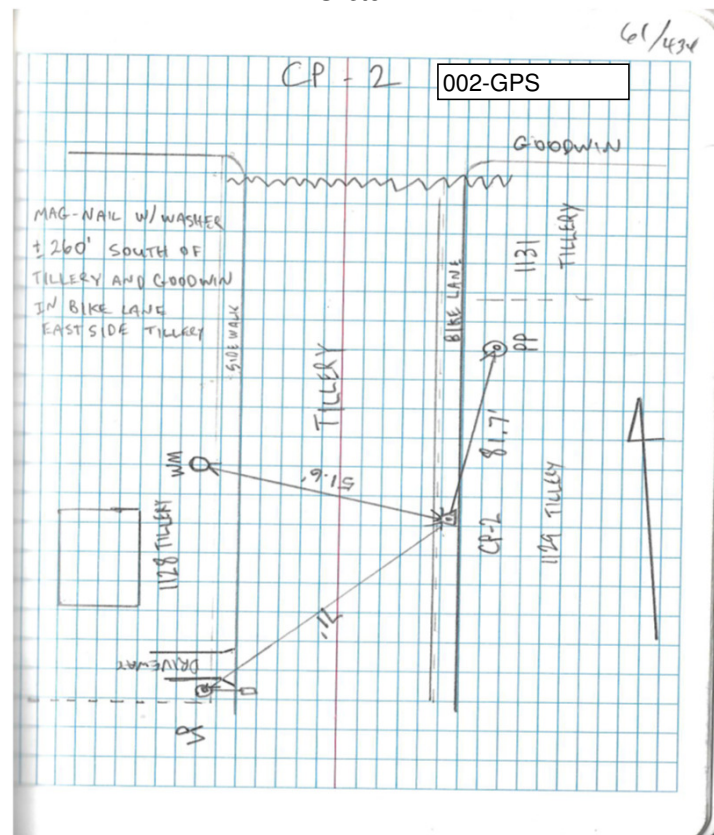 CP - 2
002-GPS
GOODWIN
MAG-NAIL W/ WASHER
± 260' SOUTH OF
TILLERY AND GOODWIN
IN BIKE LANE
EAST SIDE TILLERY
SIDEWALK
TILLERY
BIKE LANE
1131
TILLERY
PP
81.7'
WM
51.6'
CP-2
1129 TILLERY
1128 TILLERY
71'
DRIVEWAY